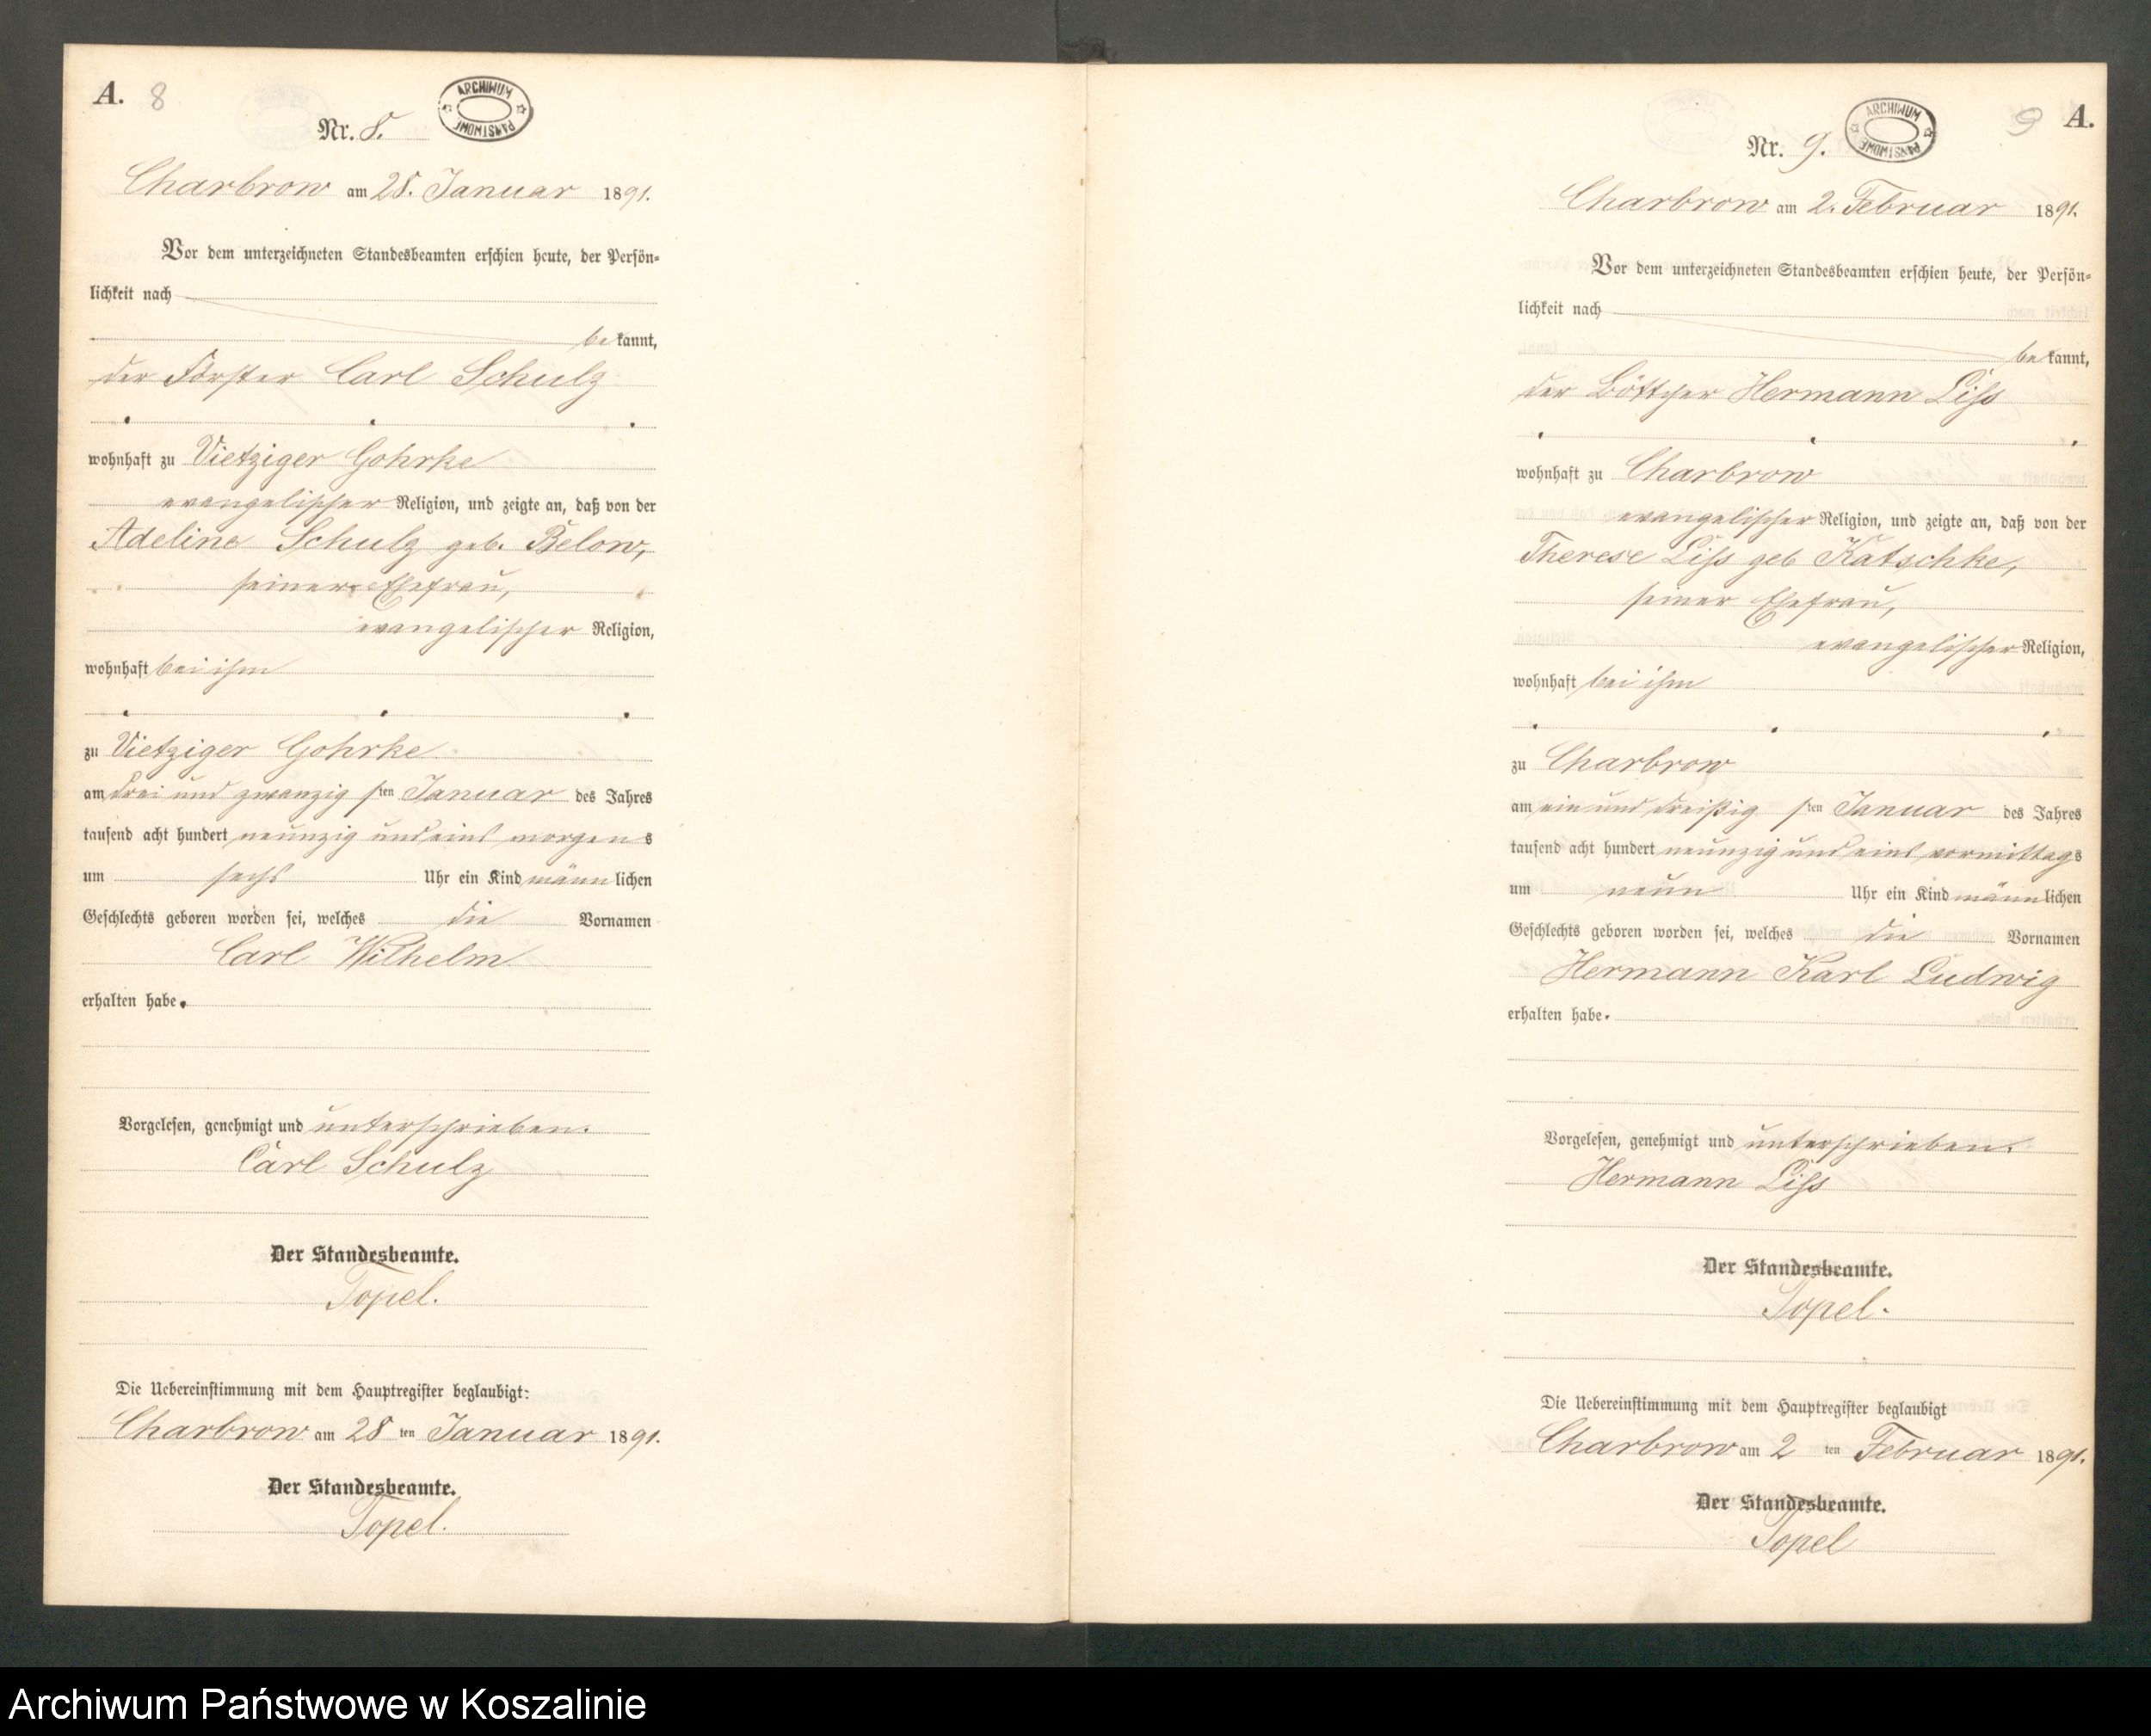 A. 8
ARCHIWUM PAŃSTWOWE
Nr. 8.
Charbrow am 28. Januar 1891.
Vor dem unterzeichneten Standesbeamten erschien heute, der Persön-
lichkeit nach
bekannt,
der Förster Carl Schulz
wohnhaft zu Vietziger Gohrke
evangelischer Religion, und zeigte an, daß von der
Adeline Schulz geb. Below,
seiner Ehefrau,
evangelischer Religion,
wohnhaft bei ihm
zu Vietziger Gohrke
am drei und zwanzigsten Januar des Jahres
tausend acht hundert neunzig und eins morgens
um sechs Uhr ein Kind männlichen
Geschlechts geboren worden sei, welches die Vornamen
Carl Wilhelm
erhalten habe.
Vorgelesen, genehmigt und unterschrieben.
Carl Schulz
Der Standesbeamte.
Topel.
Die Uebereinstimmung mit dem Hauptregister beglaubigt:
Charbrow am 28ten Januar 1891.
Der Standesbeamte.
Topel.
9 A.
ARCHIWUM PAŃSTWOWE
Nr. 9.
Charbrow am 2. Februar 1891.
Vor dem unterzeichneten Standesbeamten erschien heute, der Persön-
lichkeit nach
bekannt,
der Böttcher Hermann Liss
wohnhaft zu Charbrow
evangelischer Religion, und zeigte an, daß von der
Therese Liss geb Katschke,
seiner Ehefrau,
evangelischer Religion,
wohnhaft bei ihm
zu Charbrow
am ein und dreißigsten Januar des Jahres
tausend acht hundert neunzig und eins vormittags
um neun Uhr ein Kind männlichen
Geschlechts geboren worden sei, welches die Vornamen
Hermann Karl Ludwig
erhalten habe.
Vorgelesen, genehmigt und unterschrieben.
Hermann Liss
Der Standesbeamte.
Topel.
Die Uebereinstimmung mit dem Hauptregister beglaubigt
Charbrow am 2ten Februar 1891.
Der Standesbeamte.
Topel
Archiwum Państwowe w Koszalinie